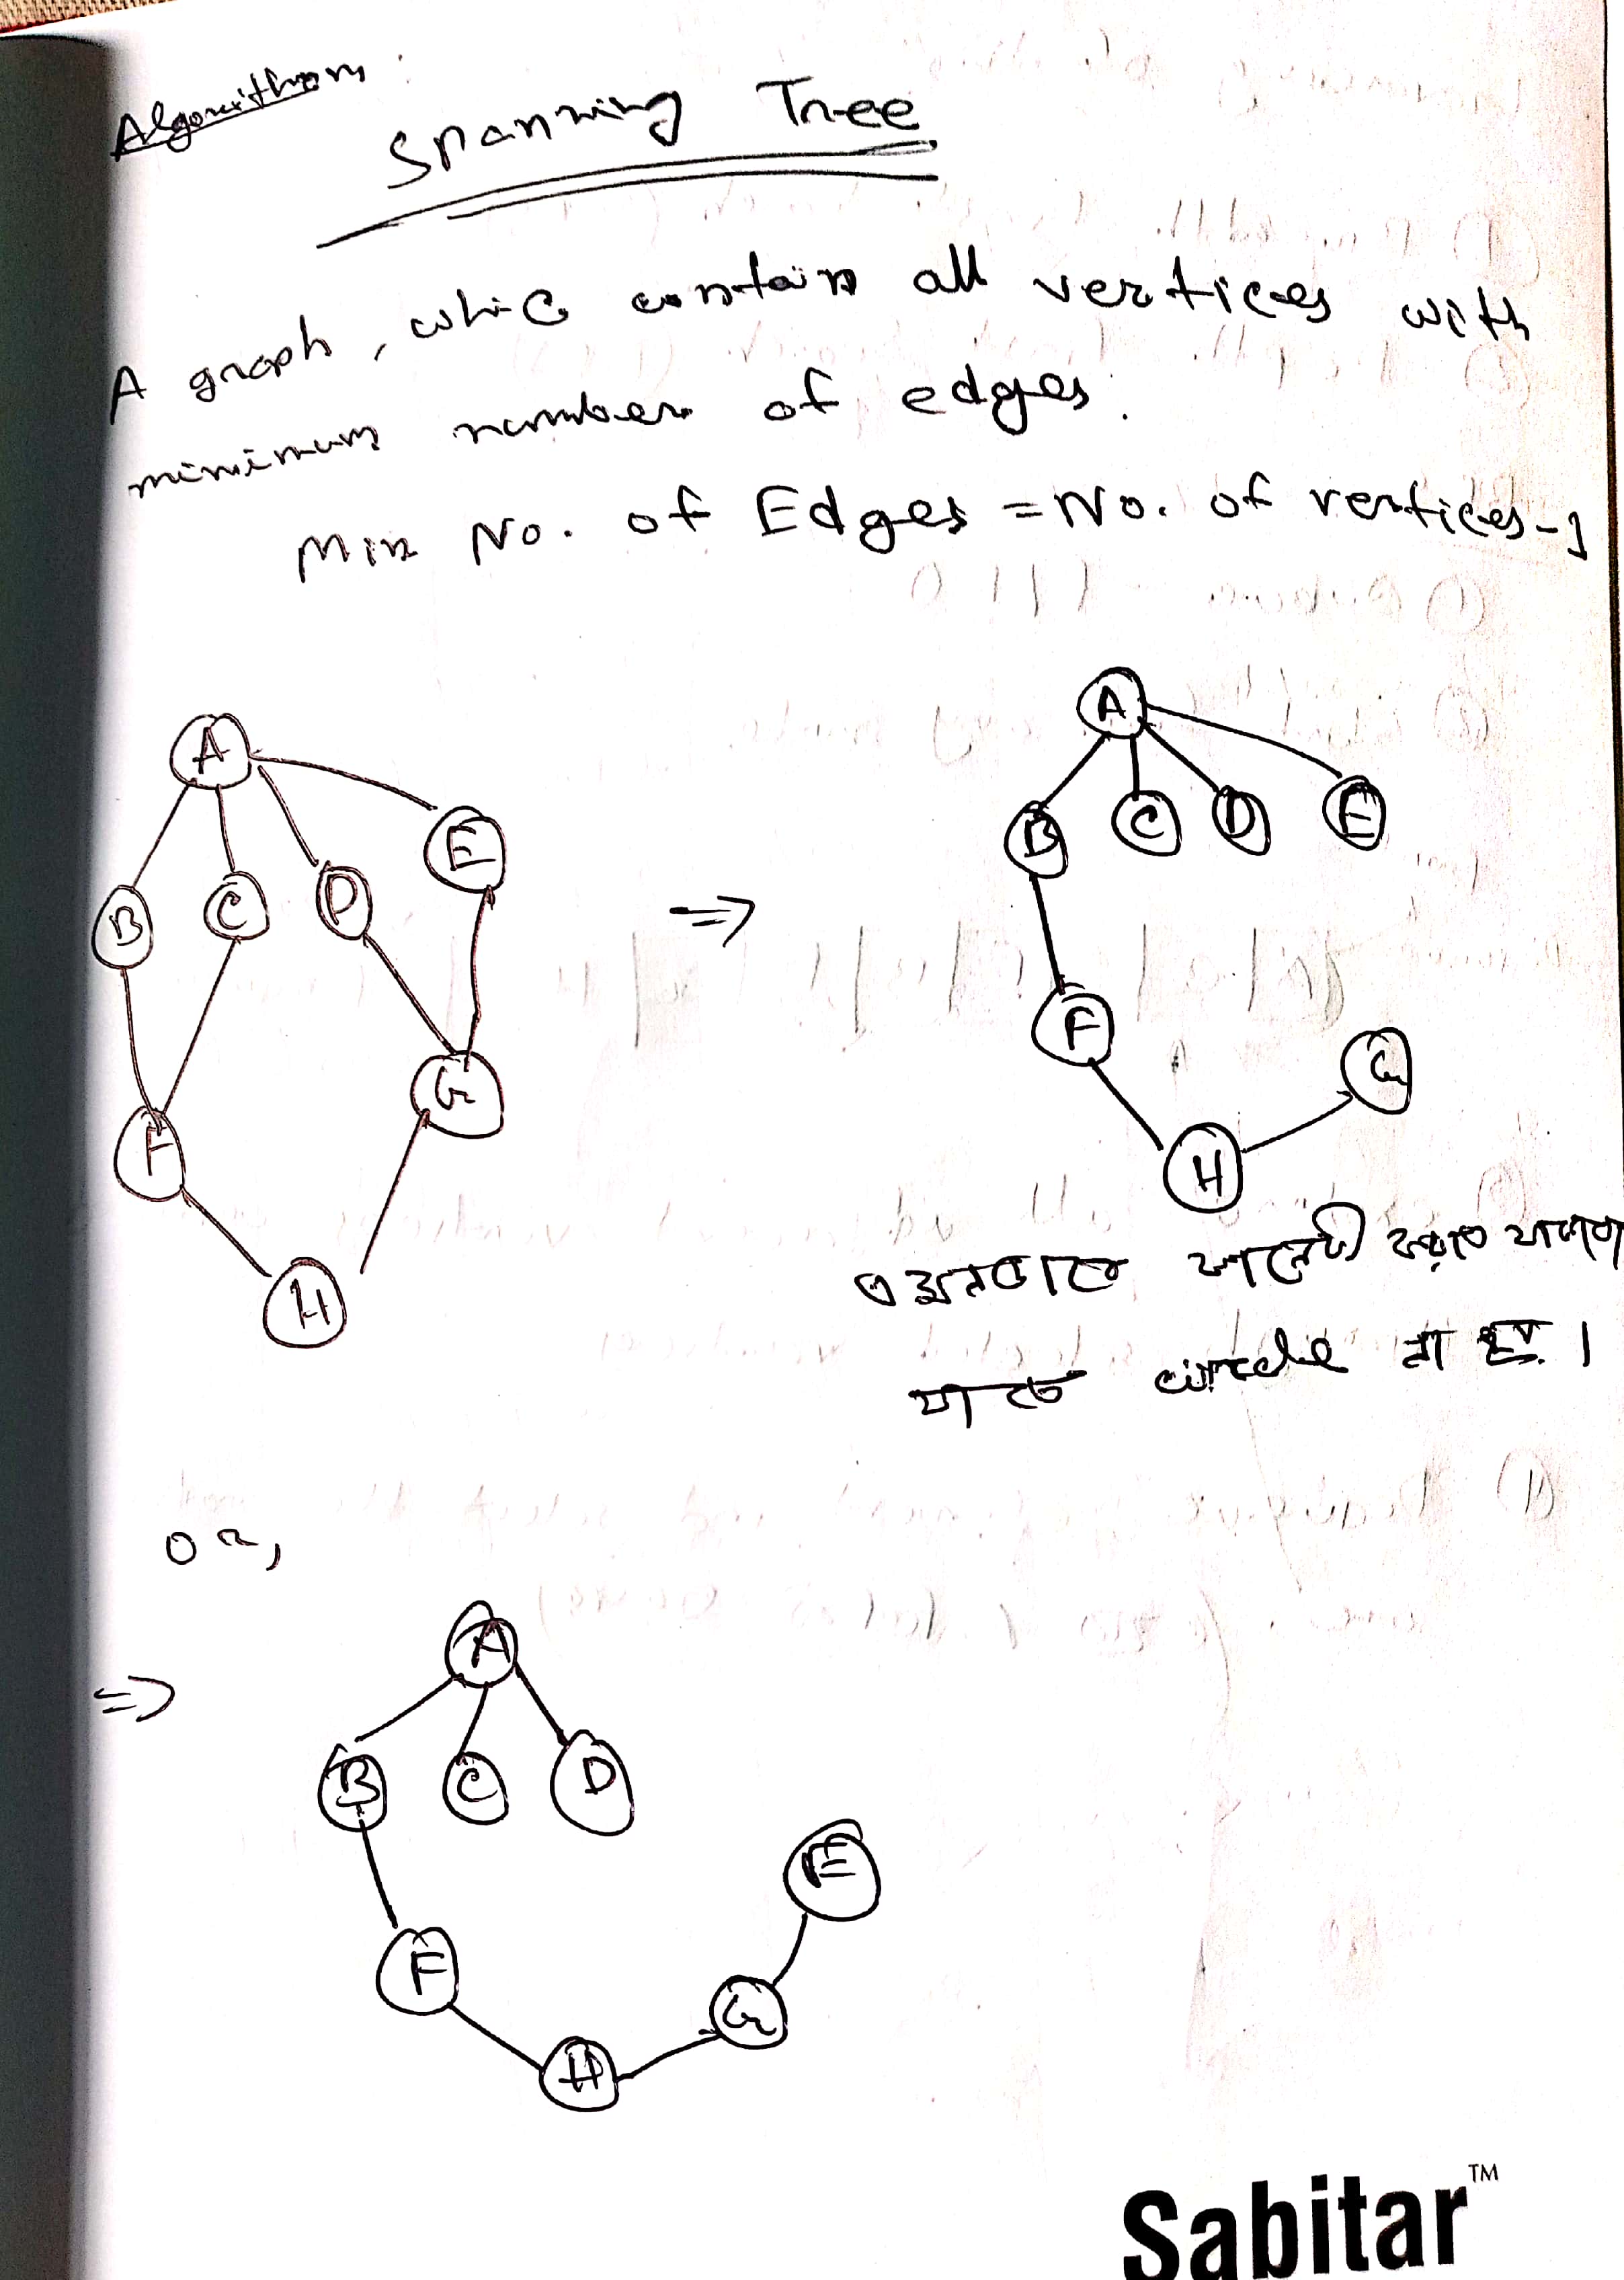 Algorithm:
Spanning Tree
A graph, whic contain all vertices with
minimum number of edges.
Min No. of Edges = No. of vertices-1
A
B C D E
F G
H
⇒
A
B C D E
F G
H
এমনভাবে
যাতে circle না হয়।
or,
⇒
A
B C D
E
F
G
H
Sabitar™